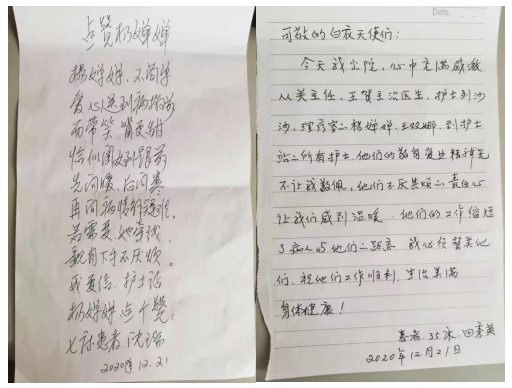 点赞杨婵婵
杨婵婵,不简单
爱心送到病榻前
面带笑,嘴更甜
恰似闺女到跟前
先问暖,后问寒
再问病情
若需要,她牵线
亲自下手不厌烦
我要信,护士站
杨婵婵点个赞
七床患者:沈
2020年12.21
Date.
可敬的白衣天使们:
今天我出院,心中充满感激
从关主任,王贺主治医生,护士刘沙
沙,理疗室的杨婵婵,王双娜,到护士
站的所有护士,他们的敬育爱业精神无
不让我敬佩,他们不厌其烦的责任心
让我们感到温暖,他们的工作缩短
了病人与他们的距离 我必须赞美他
们,祝他们工作顺利,生活美满
身体健康!
患者:35床,田秀英
2020年12月21日